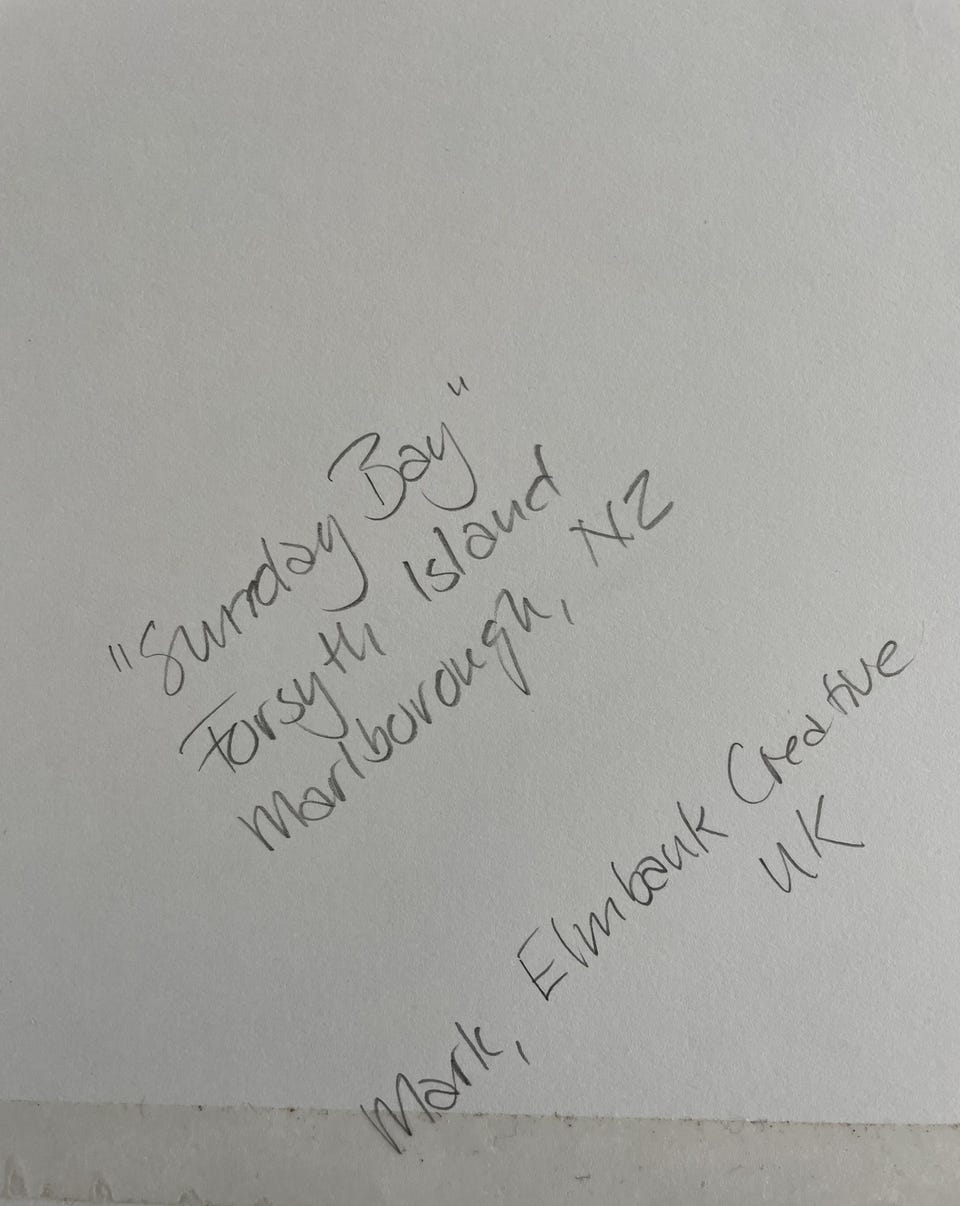 "Sunday Bay"
Forsyth Island
Marlborough, NZ
Mark, Elmbank Creative
UK